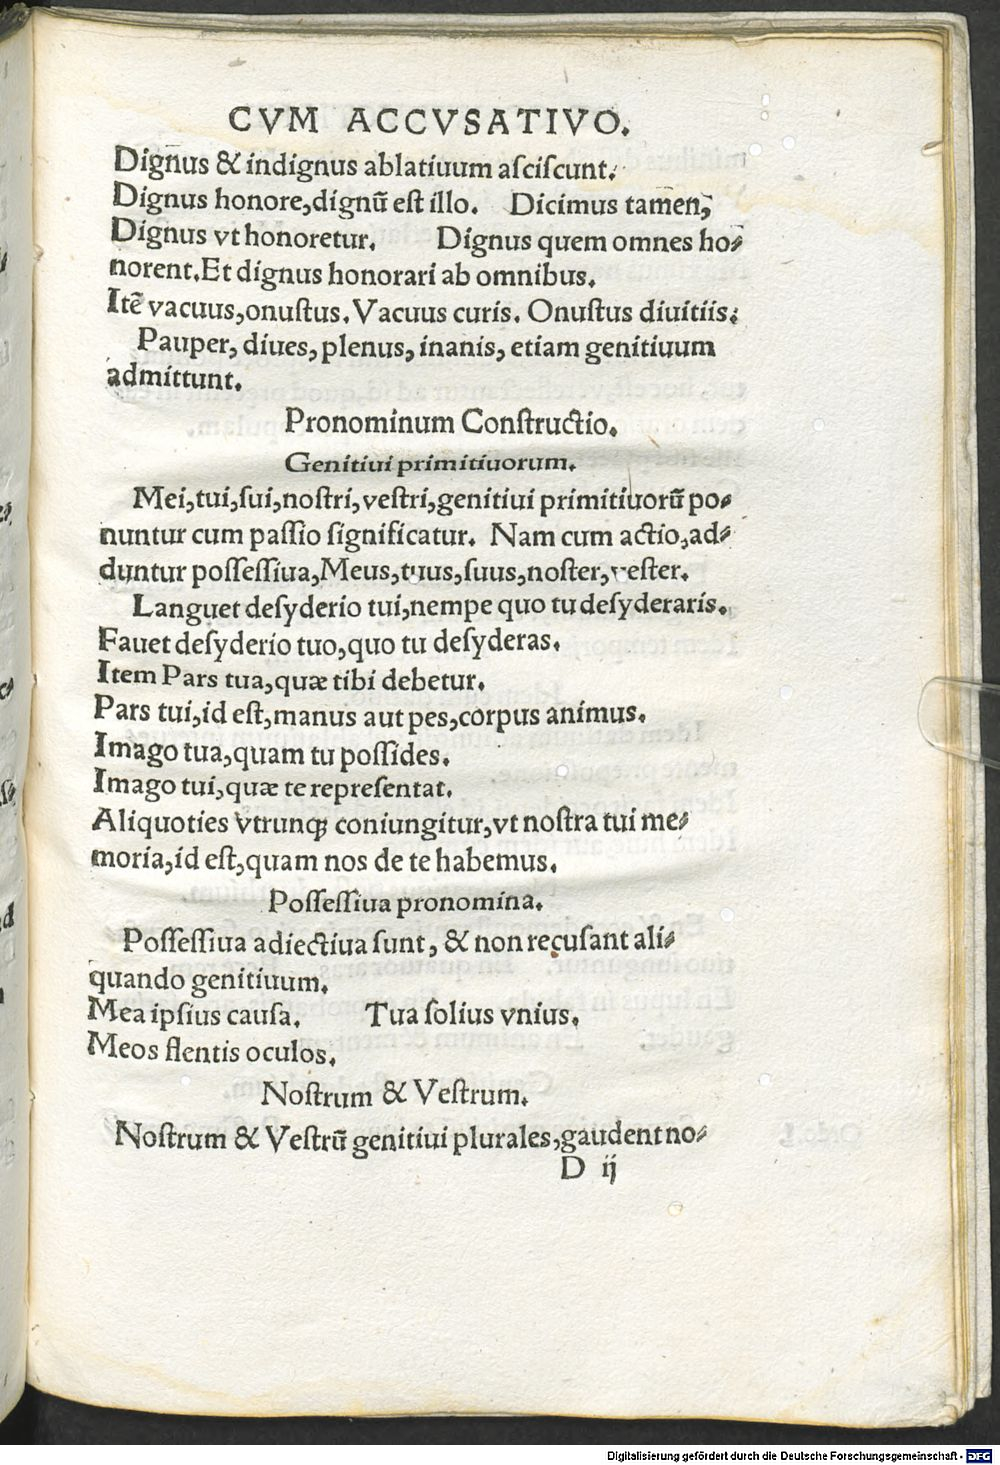 CVM ACCVSATIVO.
Dignus & indignus ablatiuum aſciſcunt.
Dignus honore,dignũ eſt illo. Dicimus tamen,
Dignus vt honoretur. Dignus quem omnes ho-
norent.Et dignus honorari ab omnibus.
Itẽ vacuus,onuſtus.Vacuus curis. Onuſtus diuitiis.
Pauper, diues, plenus, inanis, etiam genitiuum
admittunt.
Pronominum Conſtructio.
Genitiui primitiuorum.
Mei,tui,ſui,noſtri,veſtri,genitiui primitiuorũ po-
nuntur cum paſſio ſignificatur. Nam cum actio,ad-
duntur poſſeſſiua,Meus,tuus,ſuus,noſter,veſter.
Languet deſyderio tui,nempe quo tu deſyderaris.
Fauet deſyderio tuo,quo tu deſyderas.
Item Pars tua,quæ tibi debetur.
Pars tui,id eſt,manus aut pes,corpus animus.
Imago tua,quam tu poſſides.
Imago tui,quæ te repreſentat.
Aliquoties vtrunqꝫ coniungitur,vt noſtra tui me-
moria,id eſt,quam nos de te habemus.
Poſſeſſiua pronomina.
Poſſeſſiua adiectiua ſunt, & non recuſant ali-
quando genitiuum.
Mea ipſius cauſa. Tua ſolius vnius.
Meos flentis oculos.
Noſtrum & Veſtrum.
Noſtrum & Veſtrũ genitiui plurales,gaudent no-
D ij
Digitalisierung gefördert durch die Deutsche Forschungsgemeinschaft - DFG